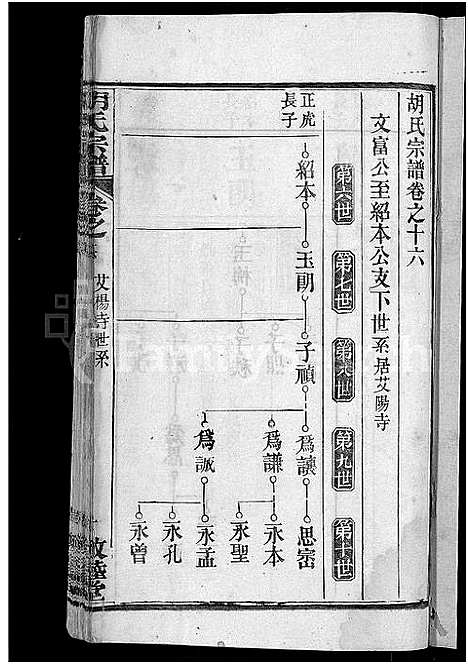 胡氏宗譜卷之十六
文富公至紹本公支下世系居艾陽寺
第六世
第七世
第八世
第九世
第十世
正虎
長子
紹本
玉朗
子禎
為讓
思富
為謙
永本
永聖
為誠
永孟
永孔
永曾
胡氏宗譜
卷之十六
艾陽寺世系
敦睦堂